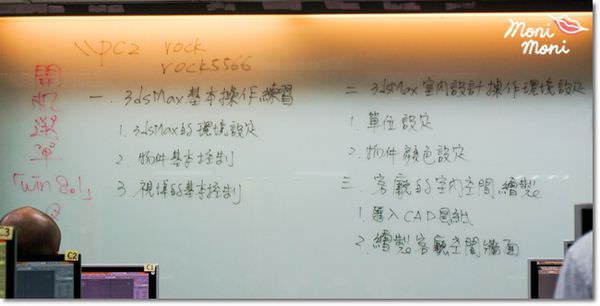 Moni
Moni
\\PC2 rock
rock5566
開
選
單
「win8.1」
一、3dsMax基本操作練習
1. 3dsMax的環境設定
2. 物件基本控制
3. 視埠的基本控制
二、3dsMax室內設計操作環境設定
1. 單位設定
2. 物件顏色設定
三、客廳的室內空間繪製
1. 匯入CAD圖紙
2. 繪製客廳空間牆面
C3
C2
C1